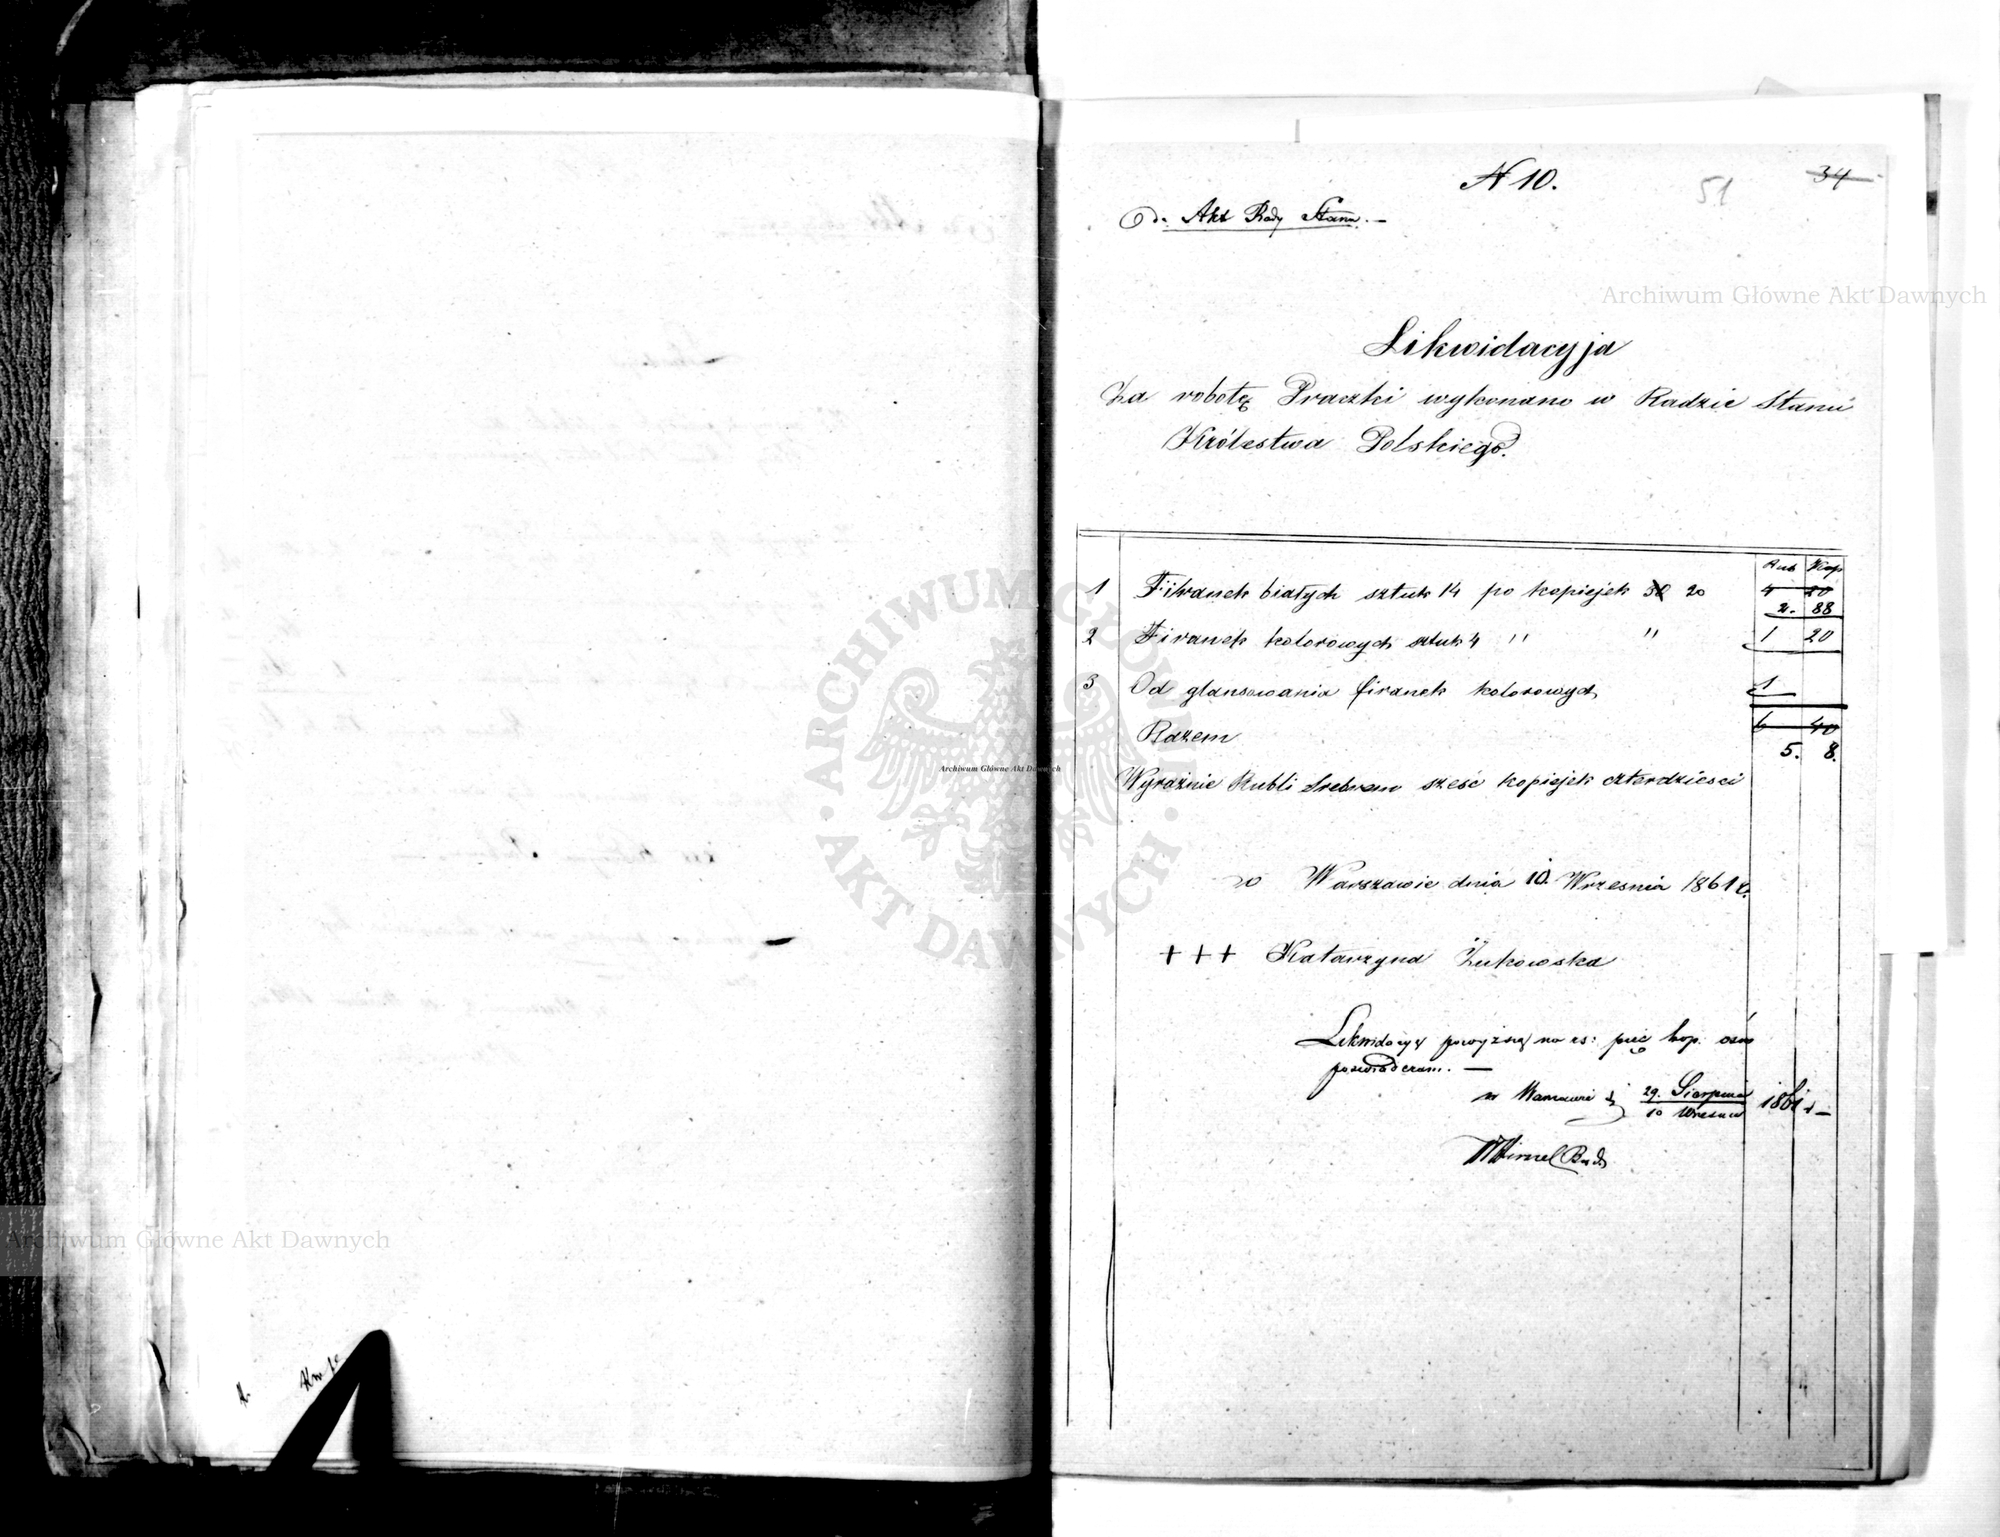 N 10.
51
34
Do Akt Rady Stanu. —
Archiwum Główne Akt Dawnych
Likwidacyja
Za robotę Praczki wykonano w Radzie Stanu
Królestwa Polskiego.
Rub Kop
1 Firanek białych sztuk 14 po kopiejek 30 20 4 20
2. 88
2 Firanek kolorowych sztuk 4 " " 1 20
3 Od glansowania firanek kolorowych 1
Razem 6 40
5. 8.
Wyraźnie Rubli Srebrem sześć kopiejek czterdzieści
w Warszawie dnia 10. Wrzesnia 1861 r.
+++ Katarzyna Żukowska
Likwidacyą powyższą na rs: pięć kop. ośm
poświadczam. —
w Warszawie d. 29. Sierpnia 1861 r. —
10 Wrzesnia
ARCHIWUM GŁÓWNE
AKT DAWNYCH
Archiwum Główne Akt Dawnych
Archiwum Główne Akt Dawnych